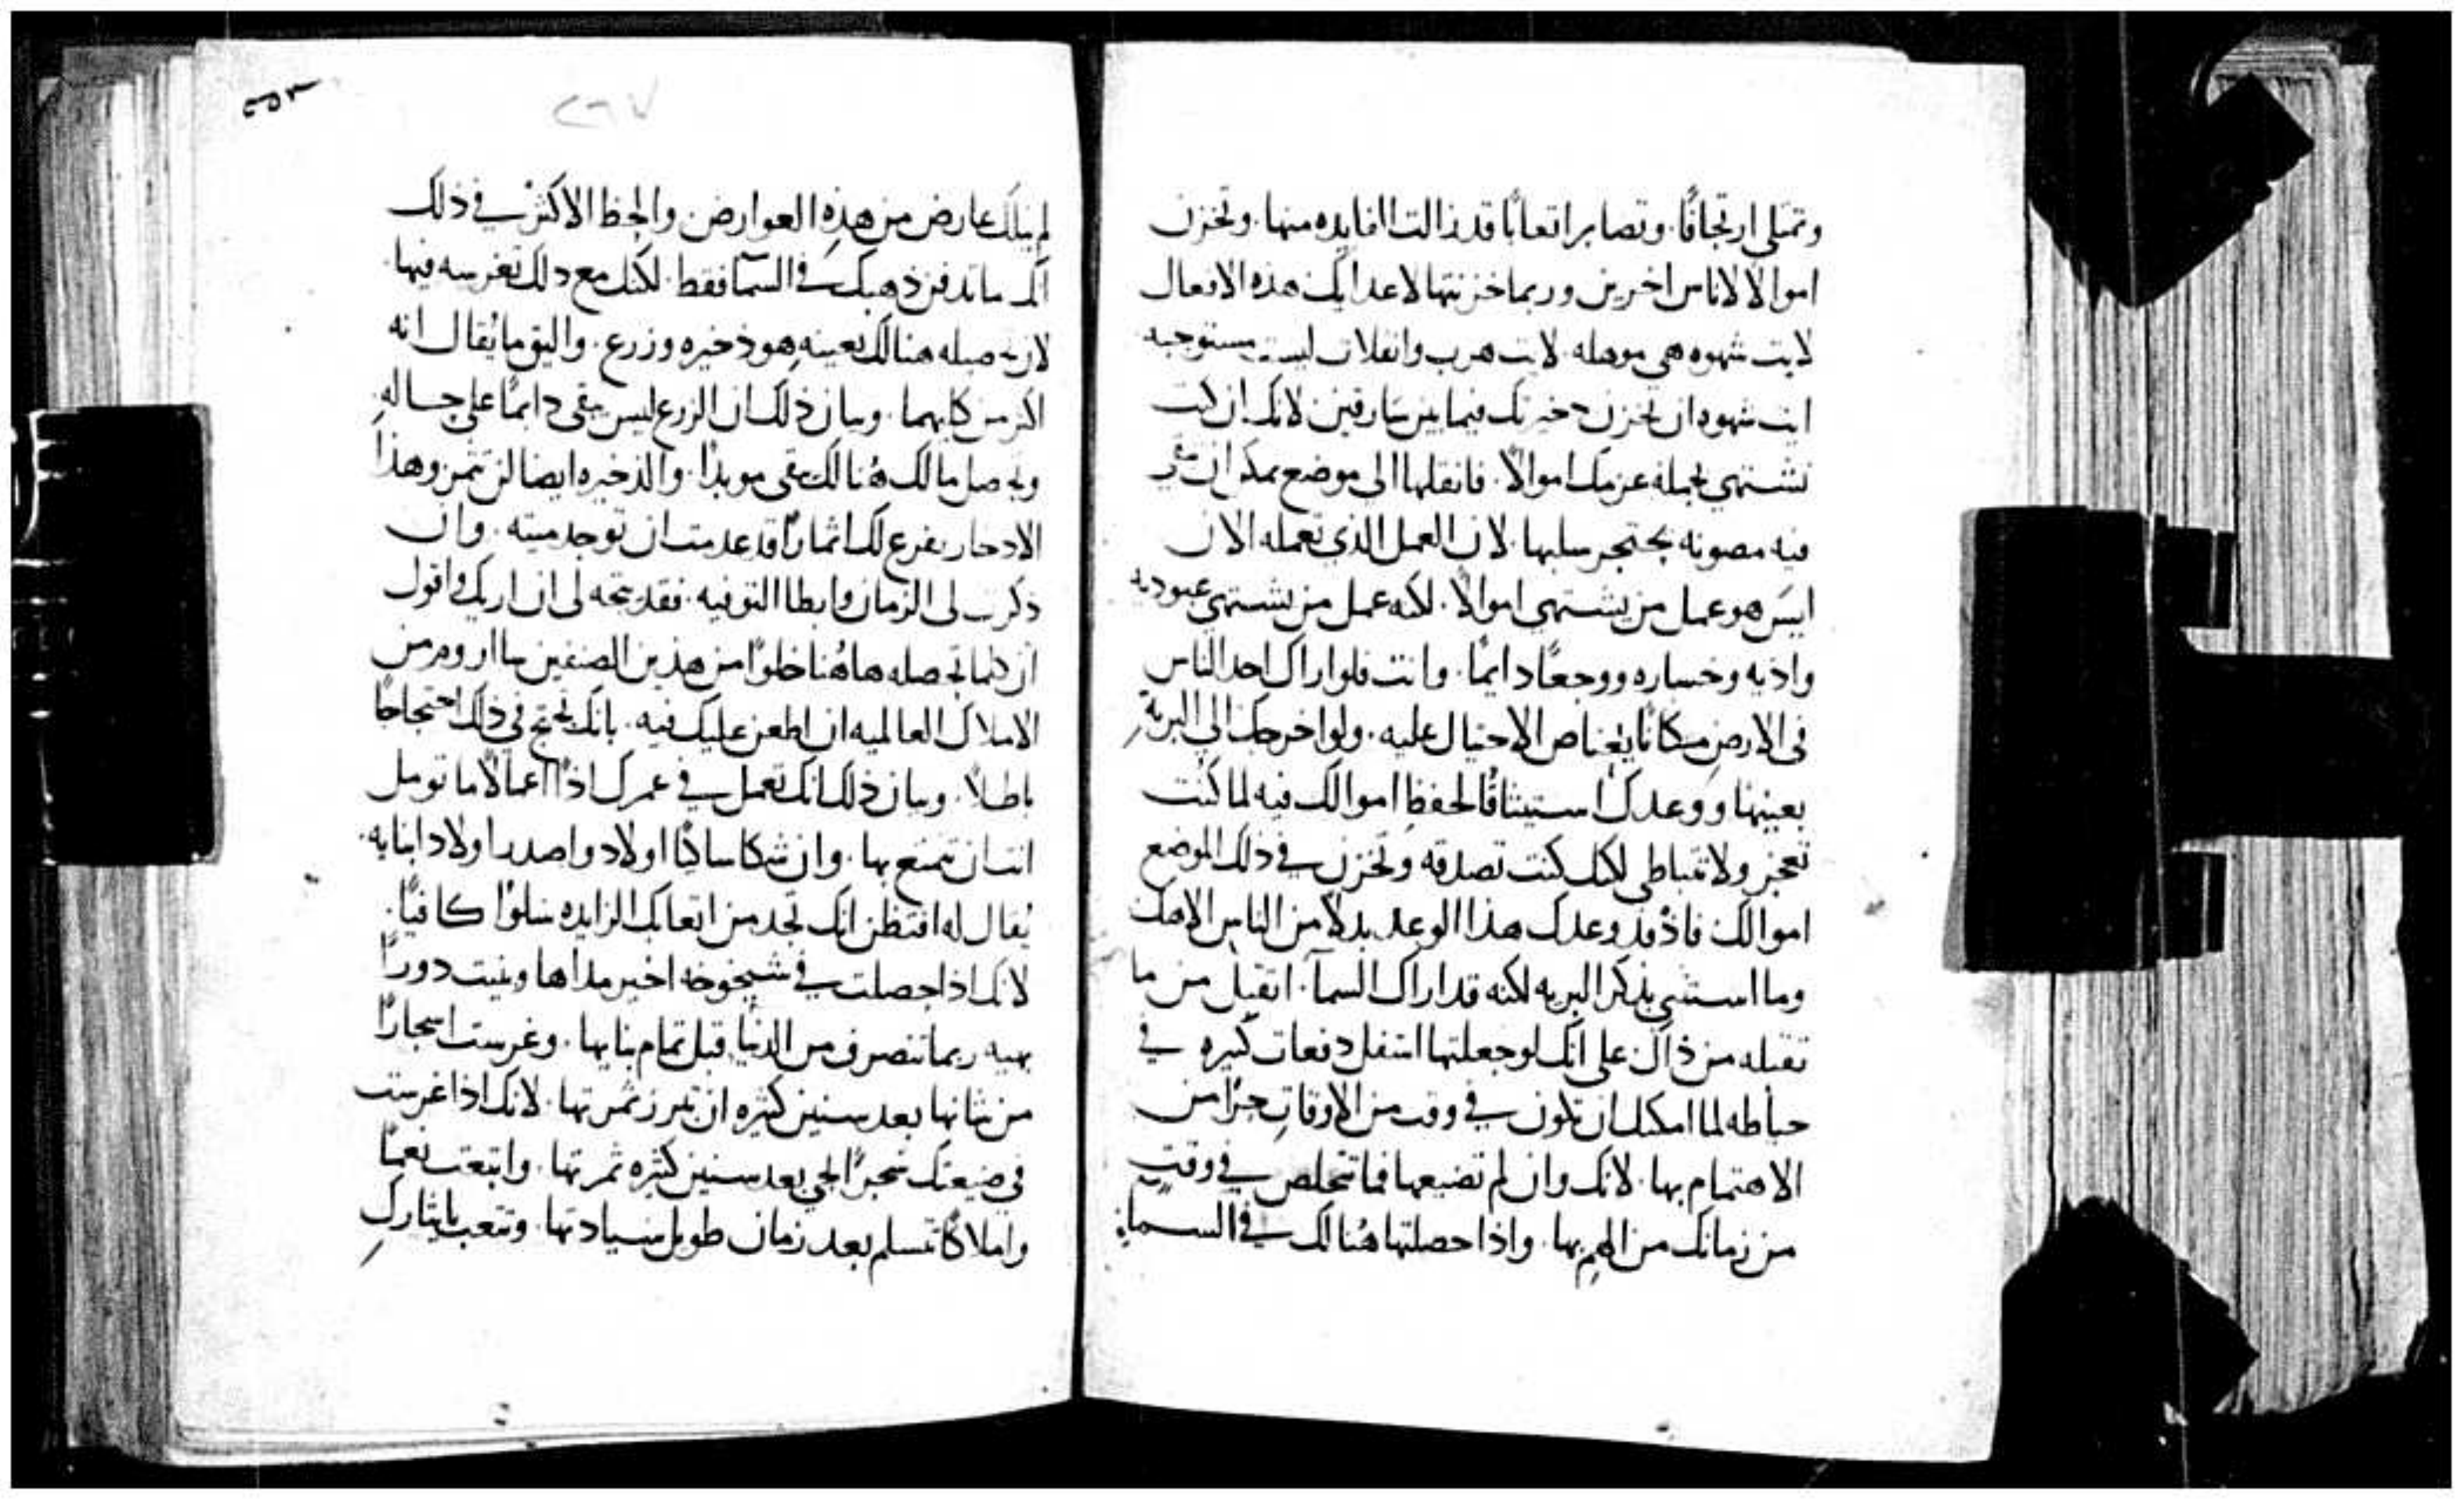 وتمتلي ارتجافًا. وتصابر اتعابًا قد زالت الفايده منها. وتخزن
اموالا لاناس اخرين وربما خزنتها لاعدايك هذه الافعال
لايت شهوه هي موهله. لايت هرب وانفلات ليست مستوجبه
ايت شهوه ان تخزن دخيرتك فيما بين سارقين لانك ان كنت
تشتهي بجمله عزمك اموالاً. فانقلها الى موضع يمكن ان
فيه مصونه يحتجر سلبها. لان العمل الذي تعمله الان
ليس هو عمل من يشتهي اموالاً. لكنه عمل من يشتهي عبوديه
واذيه وخساره ووجعًا دايمًا. وانت فلو اراك احد الناس
في الارض مكانًا يعتاص الاحتيال عليه. ولو اخرجك الى البريه
بعينها ووعدك استيثاقًا لحفظ اموالك فيه لما كنت
تعجز ولا تتباطى لكنك كنت تصدقه وتخزن في ذلك الموضع
اموالك فاذ قد وعدك هذا الوعد بدلاً من الناس الاهك
وما استثنى بذكر البريه لكنه قد اراك السمآ. اتقبل من ما
تقبله من ذاك على انك لو جعلتها اسفل دفعات كثيره في
حياطه لما امكنك ان تكون في وقت من الاوقات حرًا من
الاهتمام بها. لانك وان لم تضيعها فما تتخلص في وقت
من زمانك من الهم بها. واذا حصلتها هنالك في السماء
لم ينلك عارض من هذه العوارض والحظ الاكثر في ذلك
انك ما تدفن ذهبك في السمآ فقط. لكنك مع ذلك تغرسه فيها
لان تحصيله هنالك بعينه هو ذخيره وزرع. واليق ما يقال انه
اكثر من كليهما. وبيان ذلك ان الزرع ليس يبقى دايمًا على حاله
وتحصل مالك هنالك يبقى موبدًا. والذخيره ايضا لن تثمر وهذا
الادخار يفرع لك اثمارًا قد عدمت ان توجد ميته. وان
ذكرت لي الزمان وابطا التوفيه. فقد يتجه لي ان اريك واقول
ان كلما تحصله هاهنا خلوًا من هذين الصنفين ساروم من
الاملاك العالميه ان اطعن عليك فيه. بانك تحتج في ذلك احتجاجًا
باطلاً. وبيان ذلك انك تعمل في عمرك اذًا اعمالاً ما تومل
انت ان تتمتع بها. وان شكا شاكيًا اولاد واصدر اولاد ابنايه.
يقال له افتظن انك تجد من اتعابك الزايده سلوًا كافيًا.
لانك اذا حصلت في شيخوخه اخير مداها وبنيت دورًا
بهيه ربما تنصرف من الدنيا قبل تمام بنايها. وغرست اشجارًا
من شانها بعد سنين كثيره ان تبرز ثمرتها. لانك اذا غرست
في ضيعتك شجرًا الحي بعد سنين كثيره ثمرتها. وابتعت نعمًا
واملاكًا تتسلم بعد زمان طويل سيادتها. وتتعب بايثارك